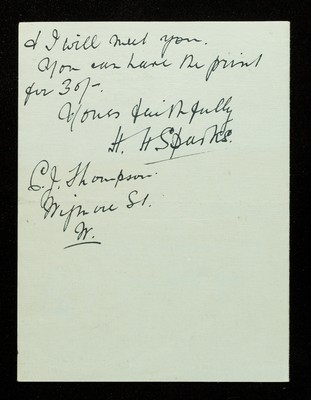 & I will meet you.
You can have the print
for 30/-.
Yours faithfully
H. H Sparks.
C. J. Thompson.
Wigmore St.
W.